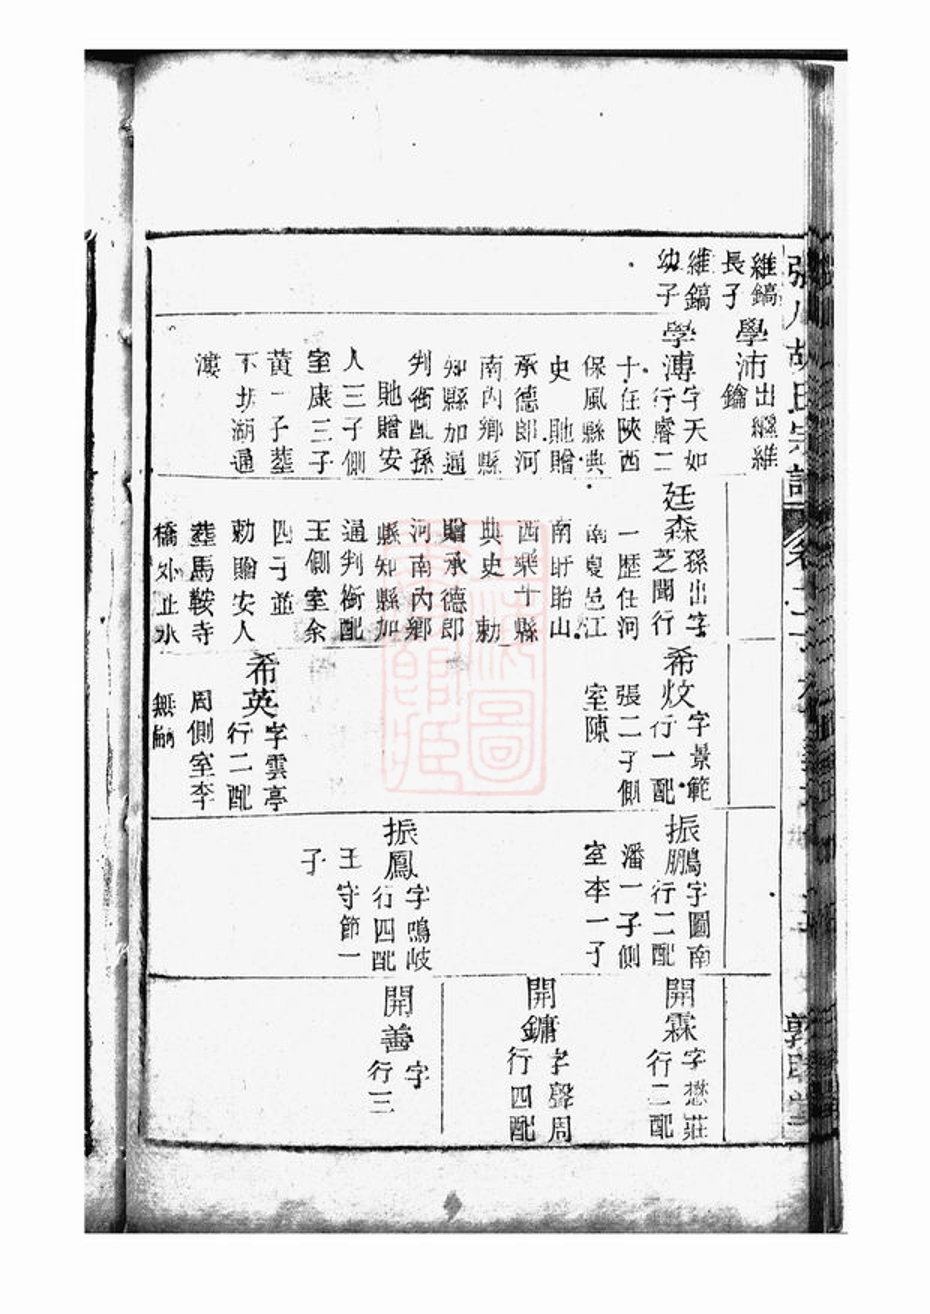 維鎬
長子
學沛
出繼維
鑰
維鎬
幼子
學溥
字天如
行睿二
十任陝西
保風縣典
史貤贈
承德郎河
南內鄉縣
知縣加通
判銜配孫
貤贈安
人三子側
室康三子
黃一子塟
湖通
漊
廷森
孫出字
芝聞行
一歷任河
南夏邑江
南盱眙山
西樂十縣
典史勅
贈承德郎
河南內鄉
縣知縣加
通判銜配
王側室余
四子並
勅贈安人
塟馬鞍寺
橋外
希炆
字景範
行一配
張二子側
室陳
希英
字雲亭
行二配
周側室李
無嗣
振鵬
字圖南
行二配
潘一子側
室李一子
振鳳
字鳴岐
行四配
王守節一
子
開霖
字懋莊
行二配
開鏞
字聲周
行四配
開善
字
行三